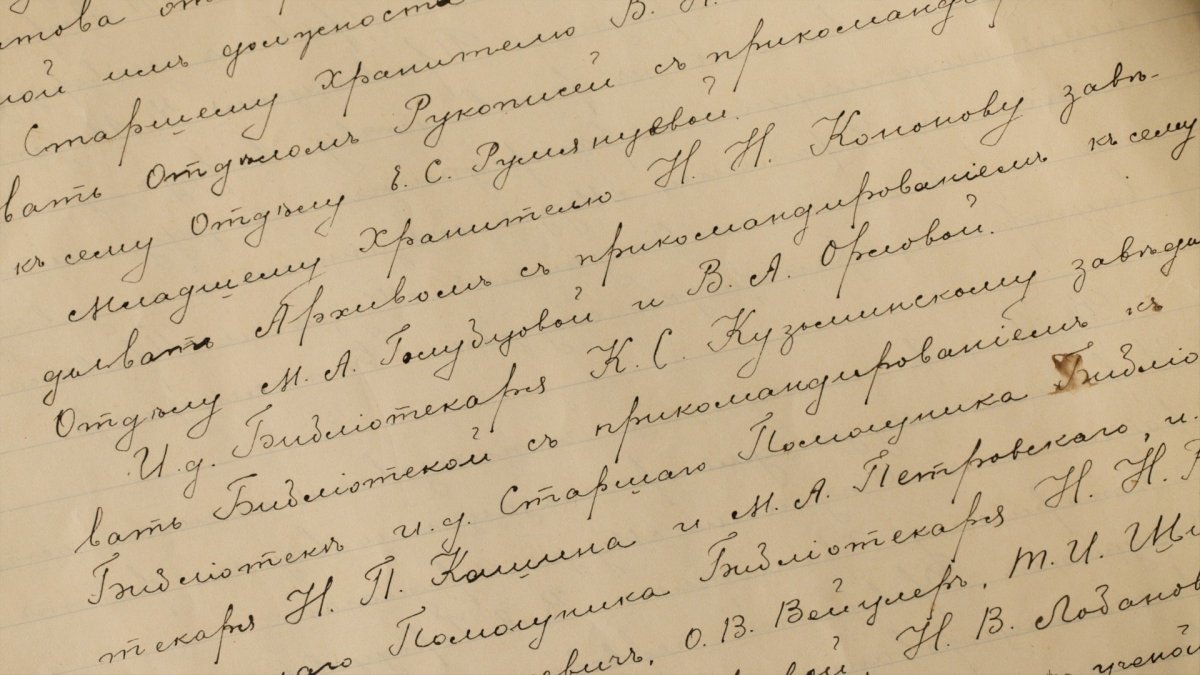 ной имъ должности
Старшему Хранителю В. Н.
вать Отдѣломъ Рукописей съ прикоманди
къ сему Отдѣлу Е. С. Румянцевой.
Младшему Хранителю Н. Н. Кононову завѣ-
дывать Архивомъ съ прикомандированіемъ къ сему
Отдѣлу М. А. Голубцовой и В. А. Орловой.
И. д. Библіотекаря К. С. Кузьминскому завѣды
вать Библіотекой съ прикомандированіемъ къ
Библіотекѣ и. д. Старшаго Помощника Библіо
текаря Н. П. Кашина и М. А. Петровскаго, и.
аго Помощника Библіотекаря Н. Н.
евичъ, О. В. Вейцлеръ, Т. И. Щи
вой Н. В. Лобанов
ученой